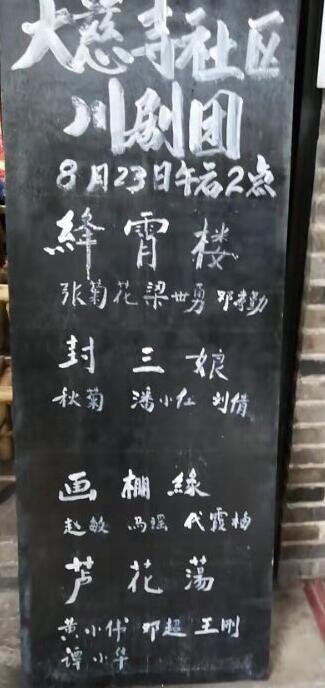 大慈寺社区
川剧团
8月23日午后2点
绛霄楼
张菊花 梁世勇 邓孝勤
封三娘
秋菊 潘小红 刘倩
画棚緣
赵敏 马瑶 代霞柚
芦花荡
黄小伟 邓超 王刚
谭小华